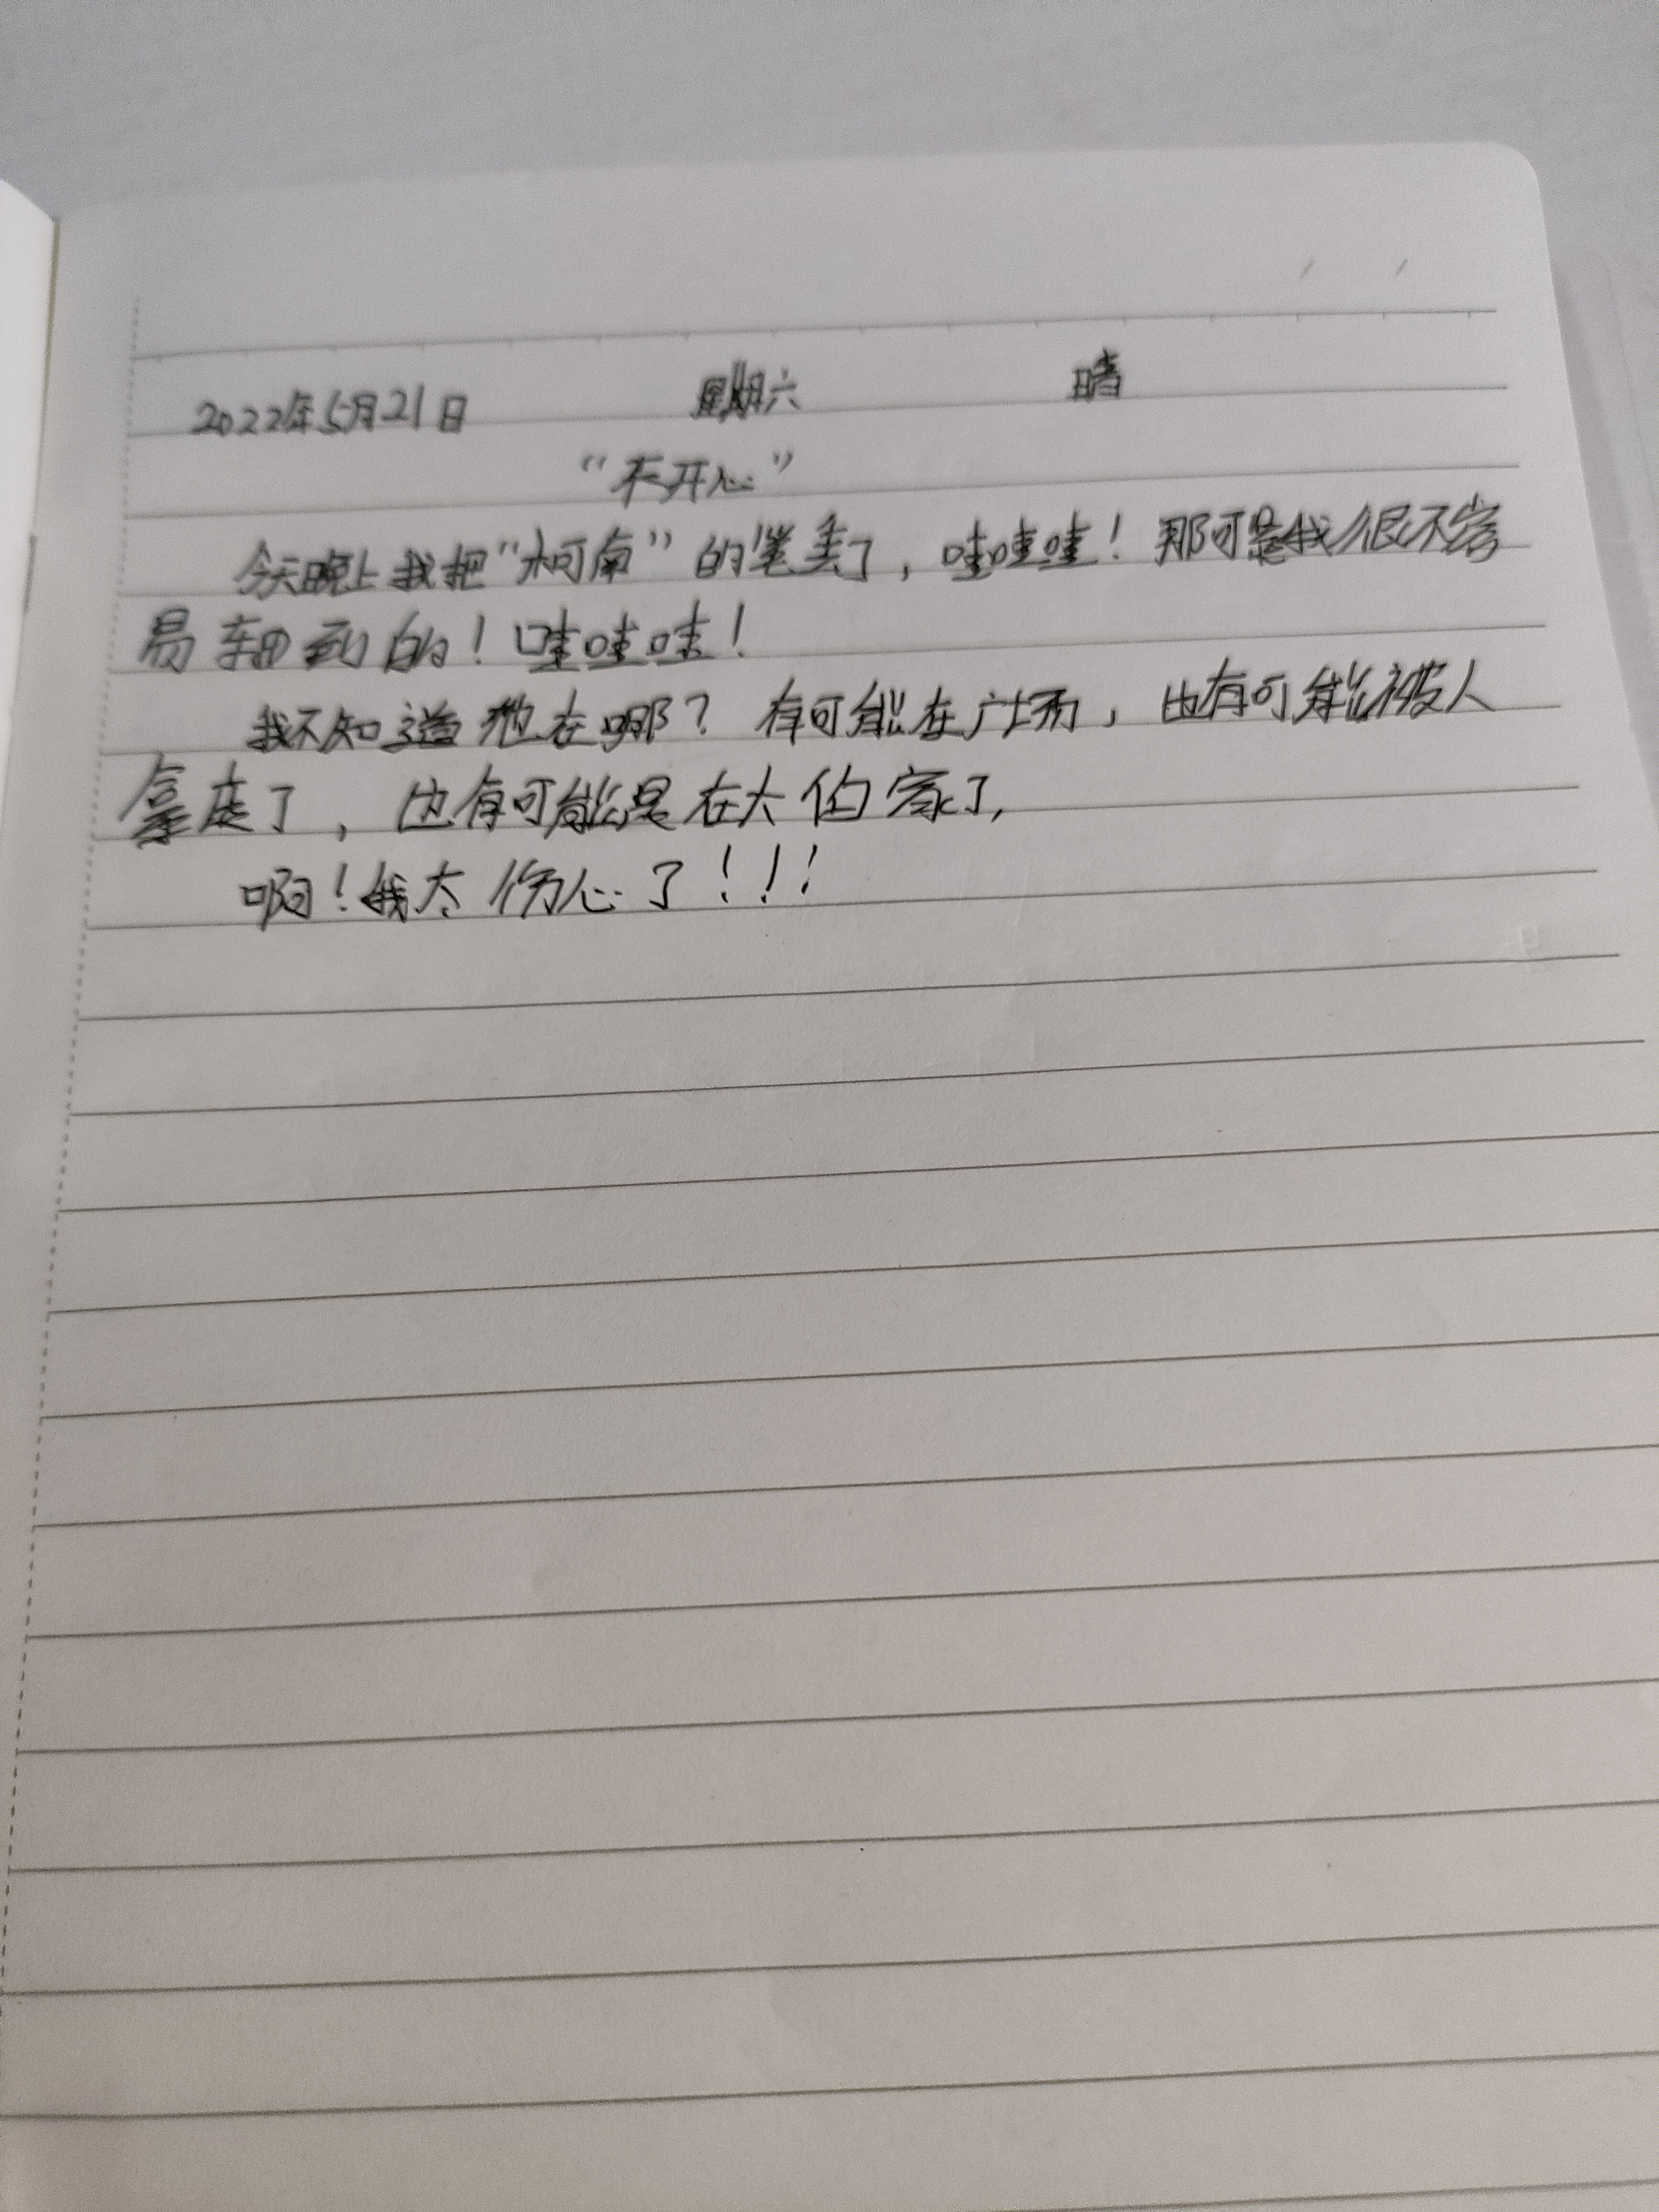 2022年5月21日 星期六 晴
“不开心”
今天晚上我把“柯南”的笔丢了，哇哇哇！那可是我很不容
易 到的！哇哇哇！
我不知道他在哪？有可能在广场，也有可能被人
拿走了，也有可能是在大伯家了，
啊！我太伤心了！！！